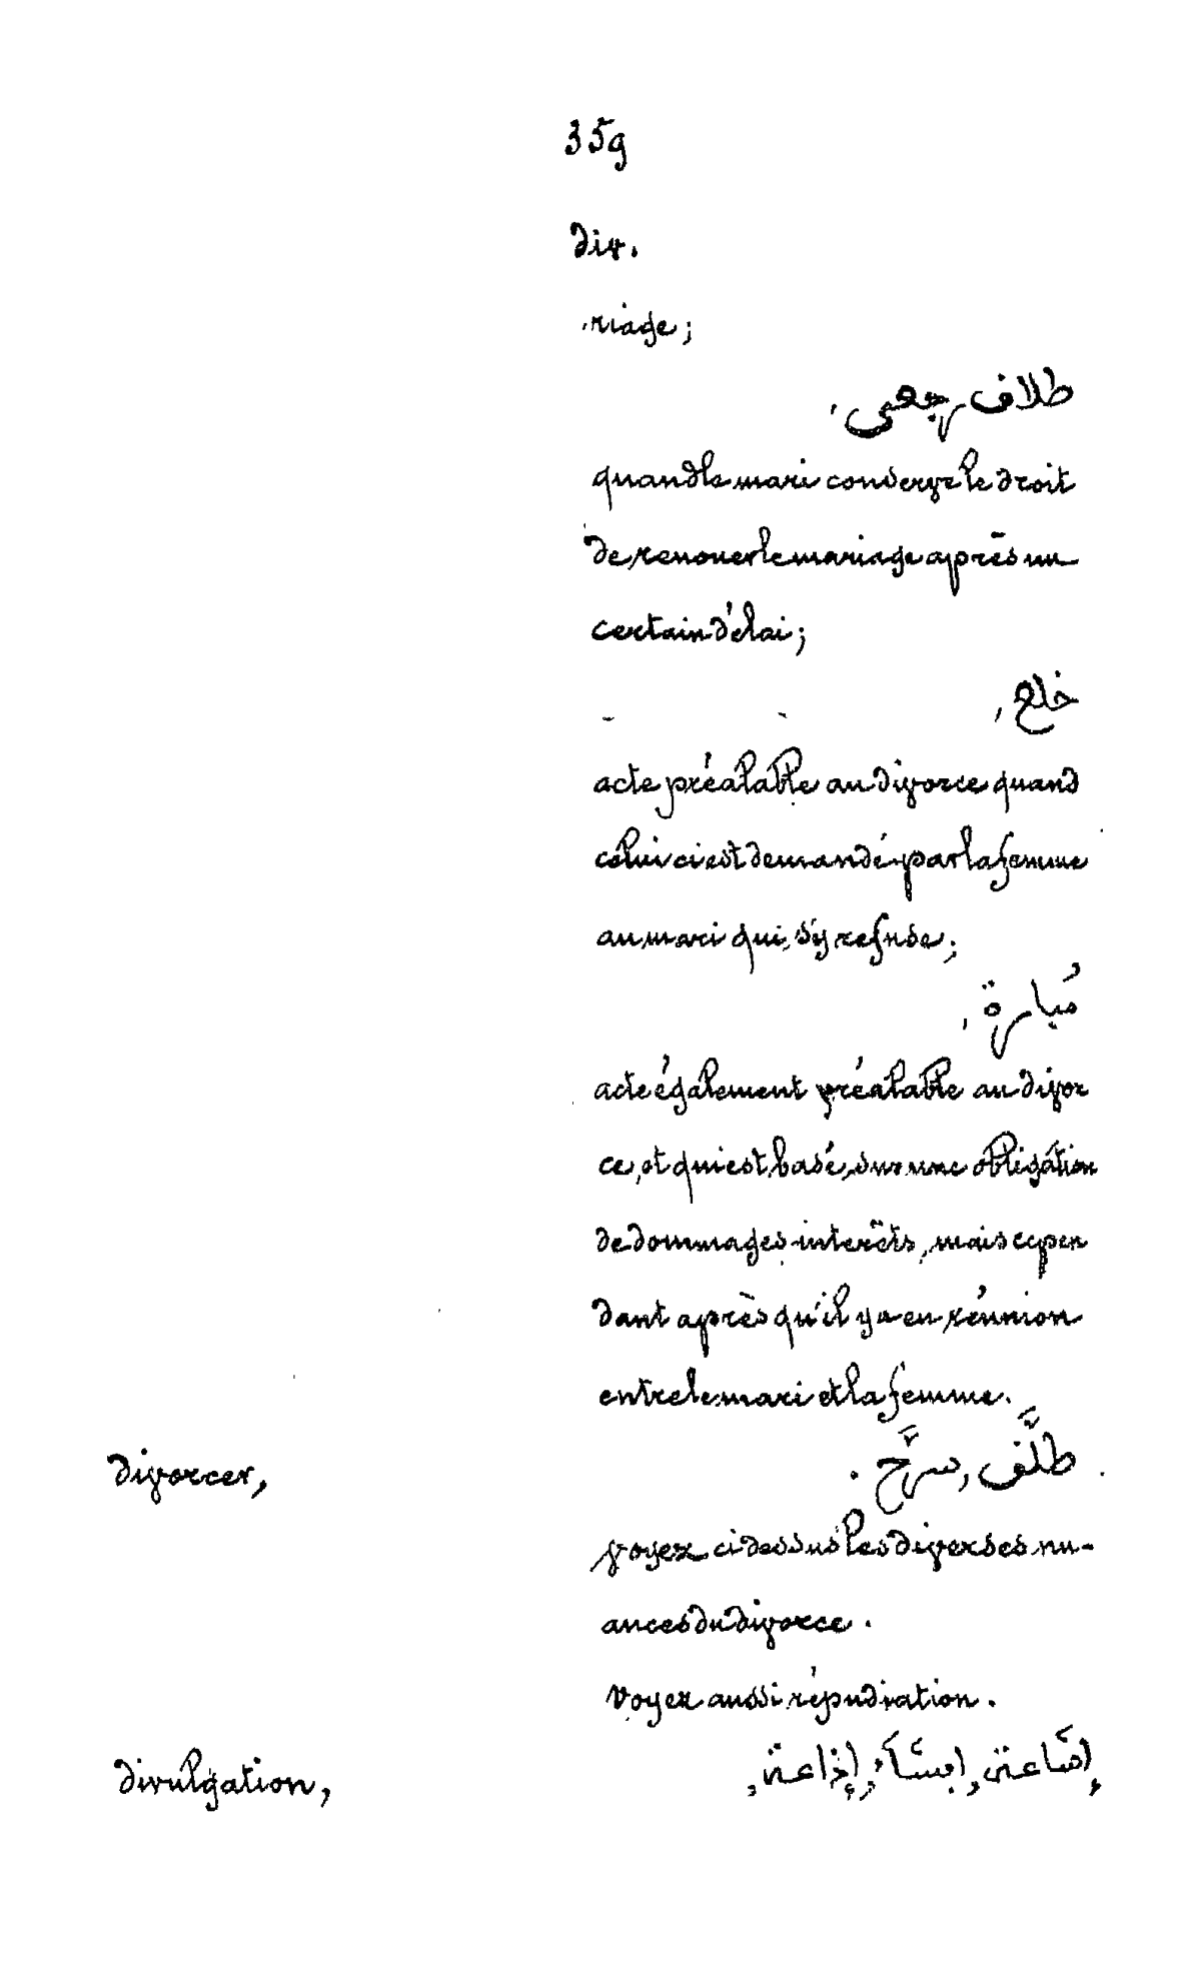 359
div.
riage;
طلاق رجعى,
quand le mari conserve le droit
de renouer le mariage après un
certain délai;
خلع,
acte préalable au divorce quand
celui ci est demandé par la femme
au mari qui s'y refuse;
مُبارة,
acte également préalable au divor
ce, et qui est basé sur une obligation
de dommages interêts, mais cepen
dant après qu'il y a eu réunion
entre le mari et la femme.
divorcer, طلَّق, سرَّح.
voyez ci dessus les diverses nu-
ances du divorce.
Voyez aussi répudiation.
divulgation, إشاعة, افشآء, إذاعة,